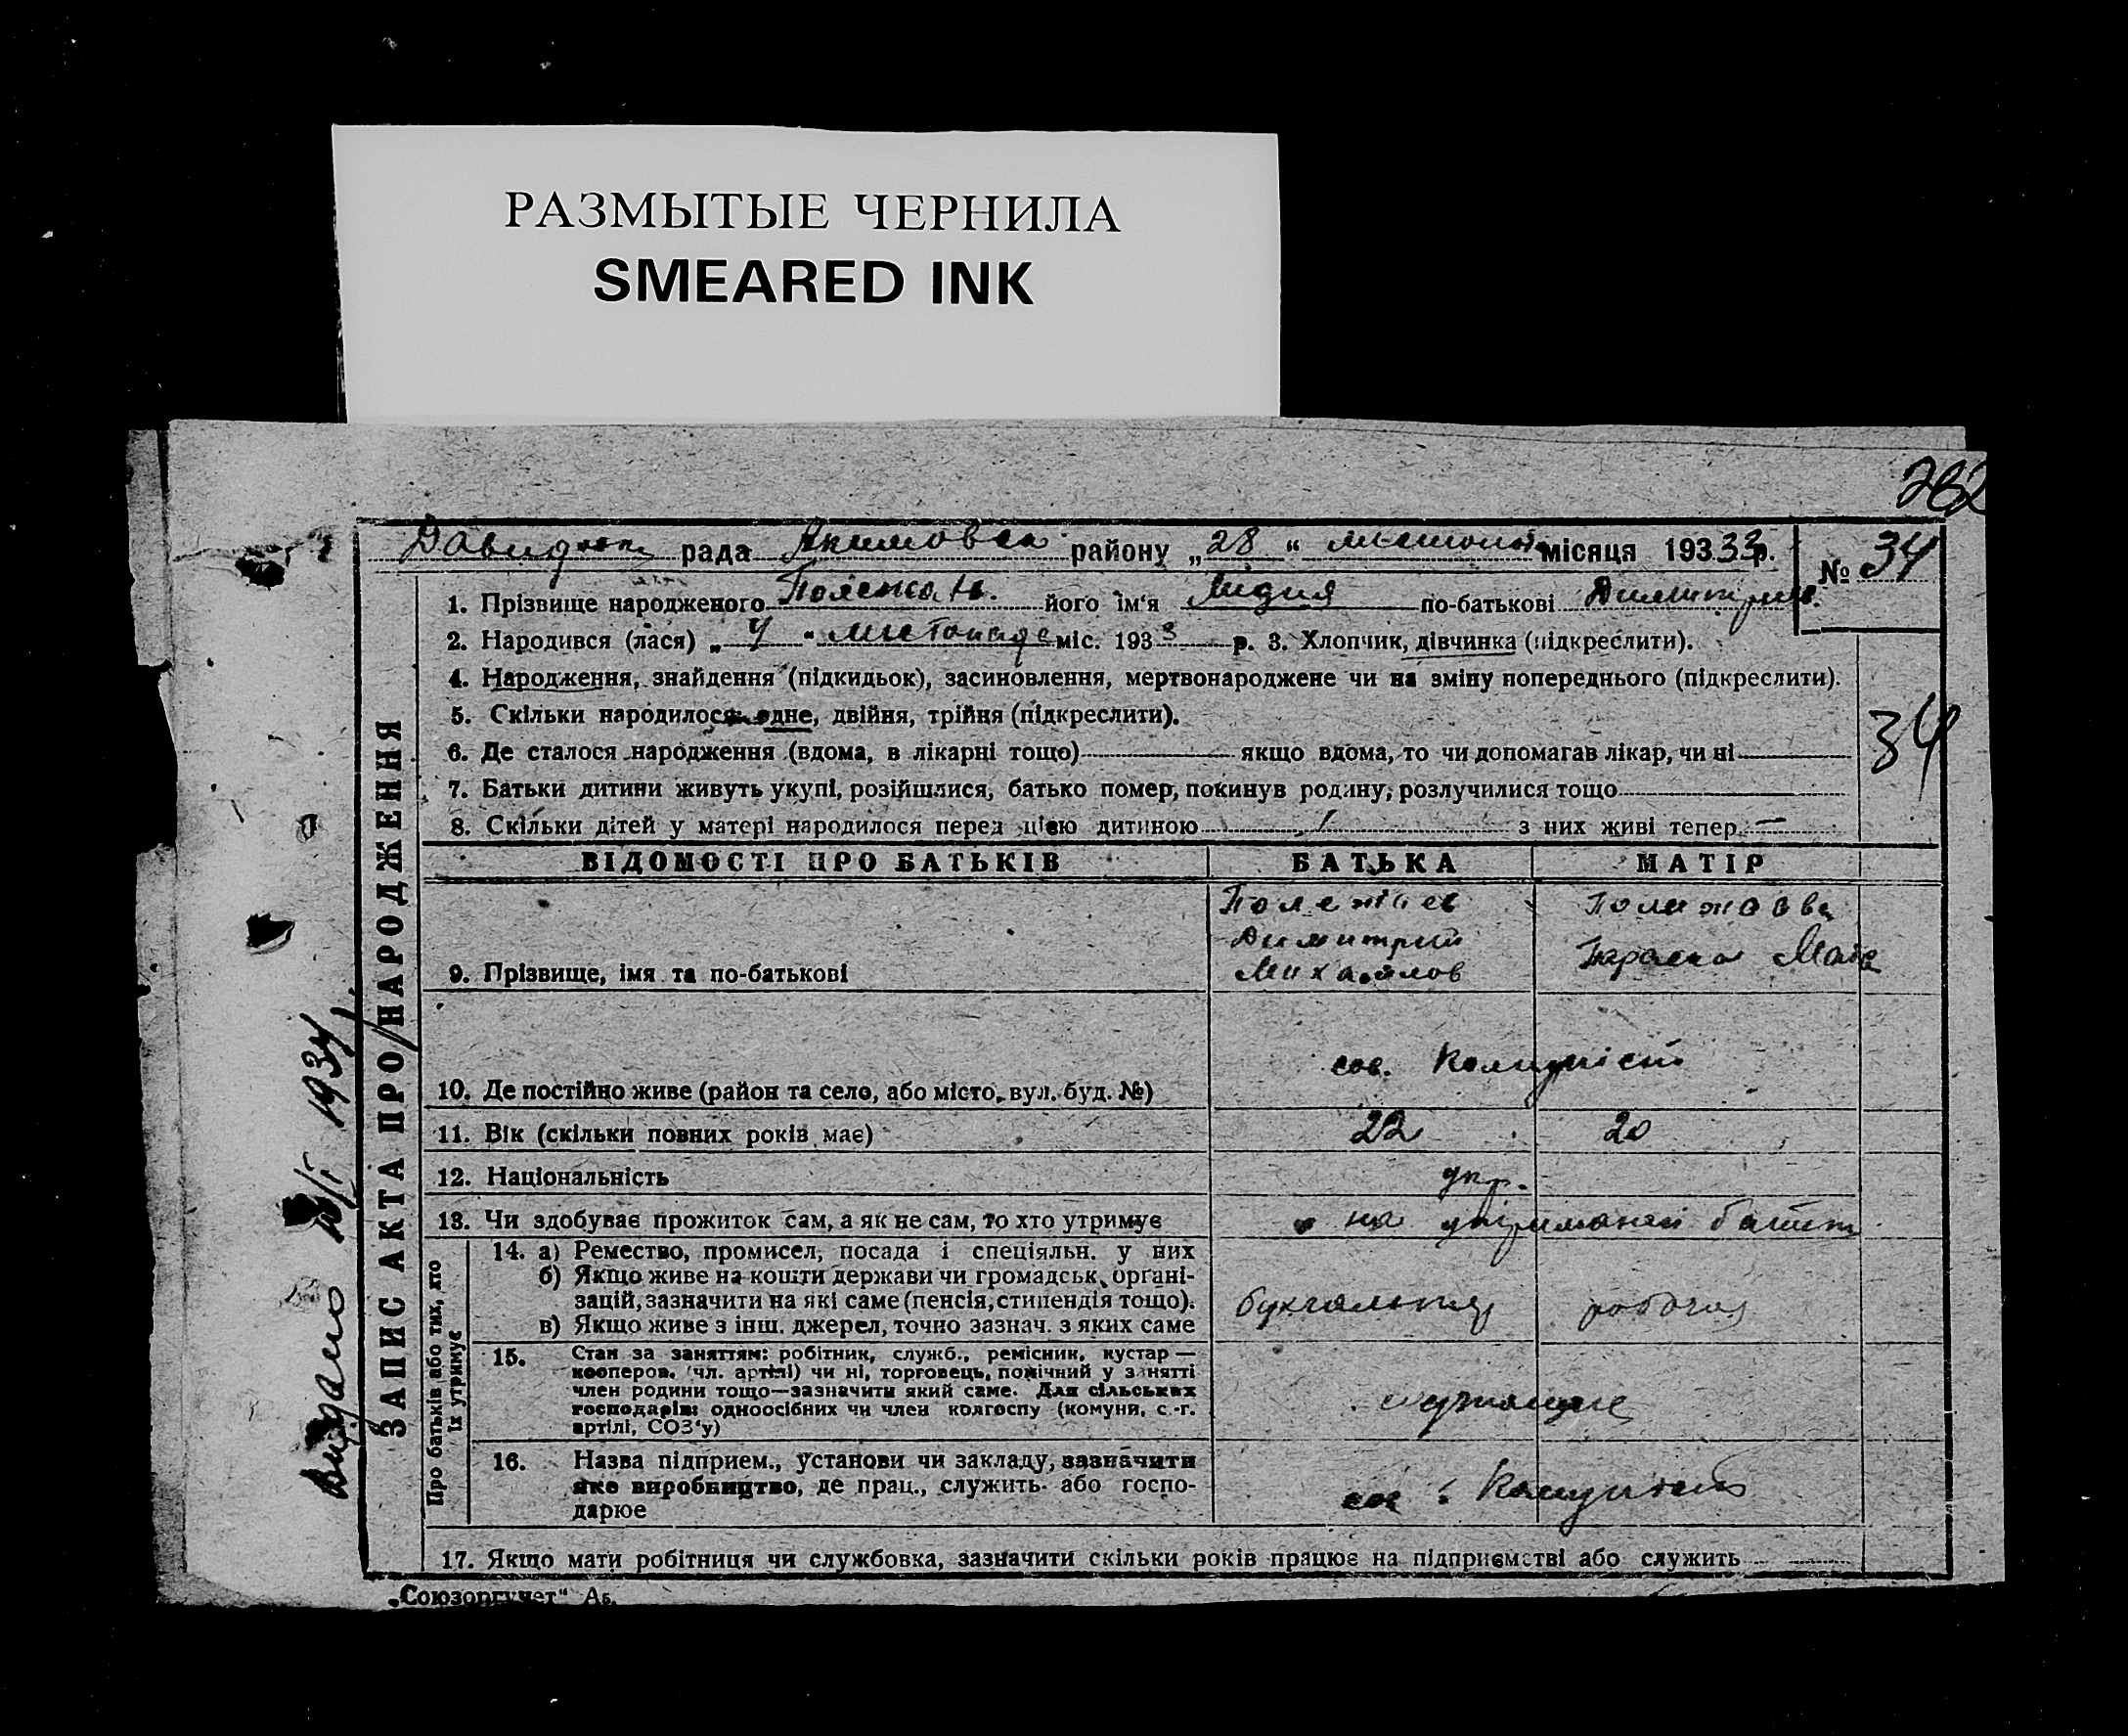 РАЗМЫТЫЕ ЧЕРНИЛА
SMEARED INK
282
рада Якимовск району „28“ місяця 193 33 р. № 34
1. Прізвище народженого його ім‘я Лидия по-батькові
2. Народився (лася) „4“ листопаде міс. 193 3 р. 3. Хлопчик, дівчинка (підкреслити).
4. Народження, знайдення (підкидьок), засиновлення, мертвонароджене чи на зміну попереднього (підкреслити).
5. Скільки народилося одне, двійня, трійня (підкреслити).
34
6. Де сталося народження (вдома, в лікарні тощо) якщо вдома, то чи допомагав лікар, чи ні
7. Батьки дитини живуть укупі, розійшлися, батько помер, покинув родину, розлучилися тощо
8. Скільки дітей у матері народилося перед цією дитиною з них живі тепер —
ВІДОМОСТІ ПРО БАТЬКІВ БАТЬКА МАТІР
9. Прізвище, імя та по-батькові
Димитрий
Михайлов
10. Де постійно живе (район та село, або місто, вул. буд. №) сов. Комуніст
11. Вік (скільки повних років має) 22 20
12. Національність укр.
13. Чи здобуває прожиток сам, а як не сам, то хто утримує на утриманні
Про батьків або тих, хто їх утримує
14. а) Ремество, промисел, посада і спеціяльн. у них
б) Якщо живе на кошти держави чи громадськ. органі-
зацій, зазначити на які саме (пенсія, стипендія тощо).
в) Якщо живе з інш. джерел, точно зазнач. з яких саме
бухгалтер робочая
15. Стан за заняттям: робітник, служб., ремісник, кустар —
кооперов. (чл. артілі) чи ні, торговець, помічний у занятті
член родини тощо—зазначити який саме. Для сільських
господарів: одноосібних чи член колгоспу (комуни, с.-г.
артілі, СОЗ‘у)
служащие
16. Назва підприєм., установи чи закладу, зазначити
яке виробництво, де прац., служить або госпо-
дарює
сов. Комуніст
17. Якщо мати робітниця чи службовка, зазначити скільки років працює на підприємстві або служить
„Союзоргучет“
ЗАПИС АКТА ПРО НАРОДЖЕННЯ
Видано 1934